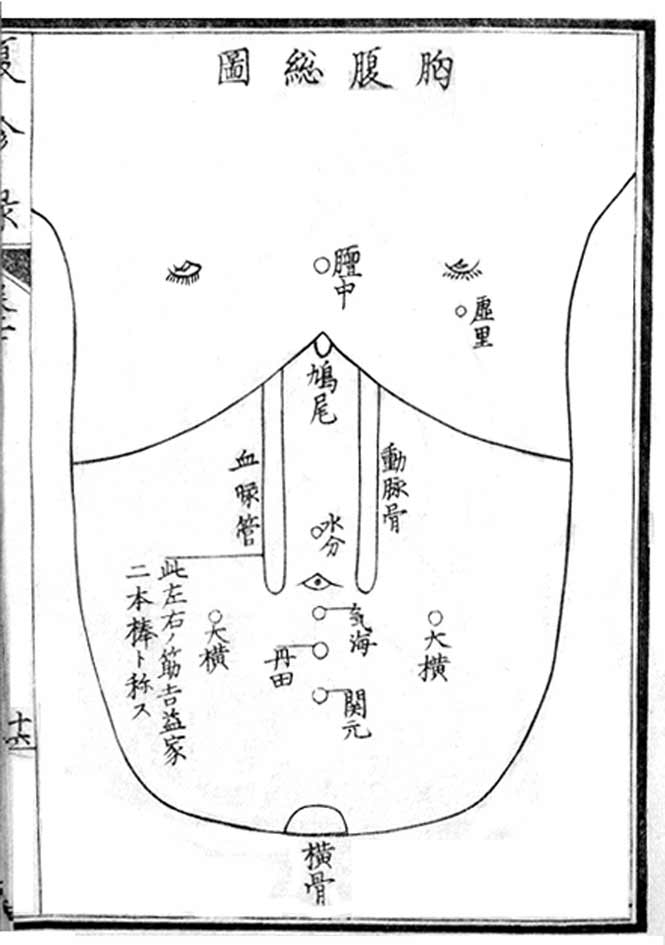 胸腹総圖
膻中
虚里
鳩尾
動脉骨
血脈管
水分
此左右ノ筋吉益家
二本棒ト称ス
大横
大横
気海
丹田
関元
横骨
十六